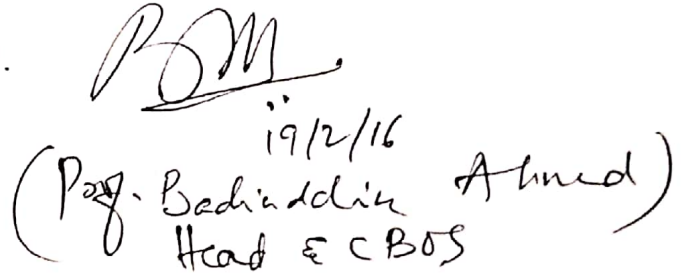 19/2/16
(Prof. Badiuddin Ahmed)
Head & CBOS